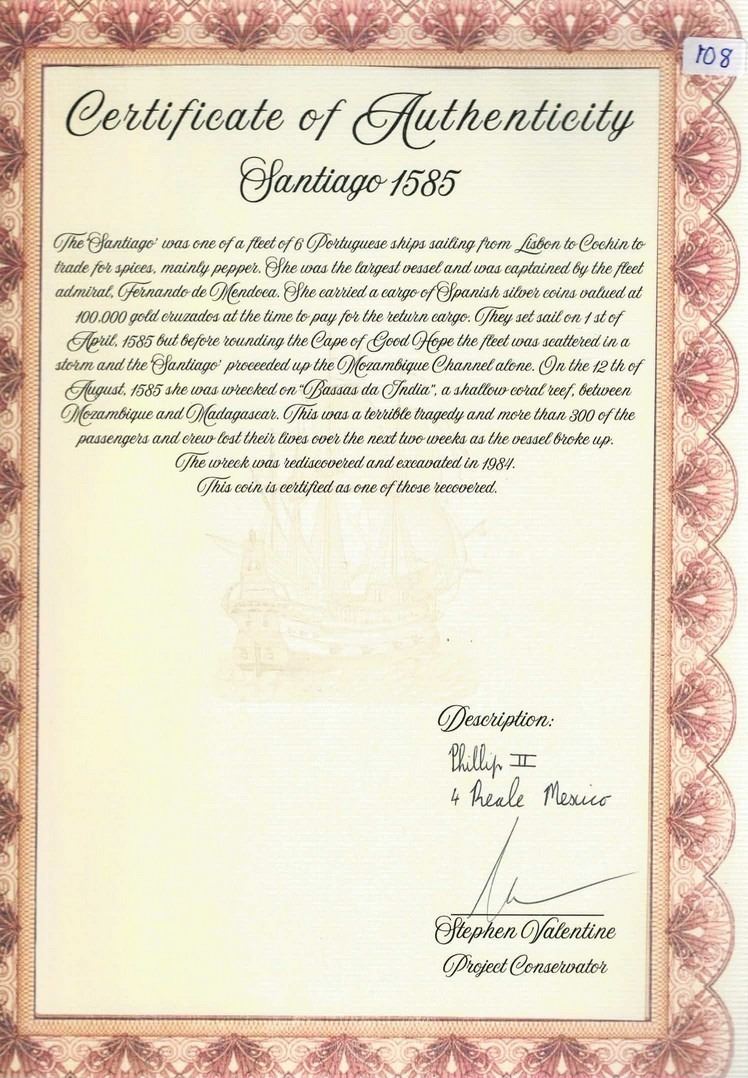 108
Certificate of Authenticity
Santiago 1585
The 'Santiago' was one of a fleet of 6 Portuguese ships sailing from Lisbon to Cochin to
trade for spices, mainly pepper. She was the largest vessel and was captained by the fleet
admiral, Fernando de Mendoca. She carried a cargo of Spanish silver coins valued at
100.000 gold cruzados at the time to pay for the return cargo. They set sail on 1 st of
April, 1585 but before rounding the Cape of Good Hope the fleet was scattered in a
storm and the 'Santiago' proceeded up the Mozambique Channel alone. On the 12 th of
August, 1585 she was wrecked on "Bassas da India", a shallow coral reef, between
Mozambique and Madagascar. This was a terrible tragedy and more than 300 of the
passengers and crew lost their lives over the next two weeks as the vessel broke up.
The wreck was rediscovered and excavated in 1984.
This coin is certified as one of those recovered.
Description:
Phillip II
4 Reale Mexico
Stephen Valentine
Project Conservator